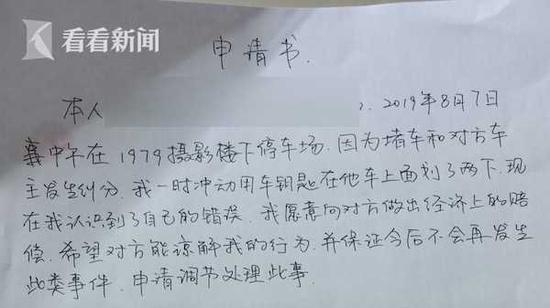 看看新闻
申请书.
本人
2019年8月7日
中午在1979摄影楼下停车场.因为堵车和对方车
主发生纠分.我一时冲动用车钥匙在他车上面划了两下.现
在我认识到了自己的错误.我愿意向对方做出经济上的赔
偿.希望对方能谅解我的行为.并保证今后不会再发生
此类事件.申请调节处理此事.